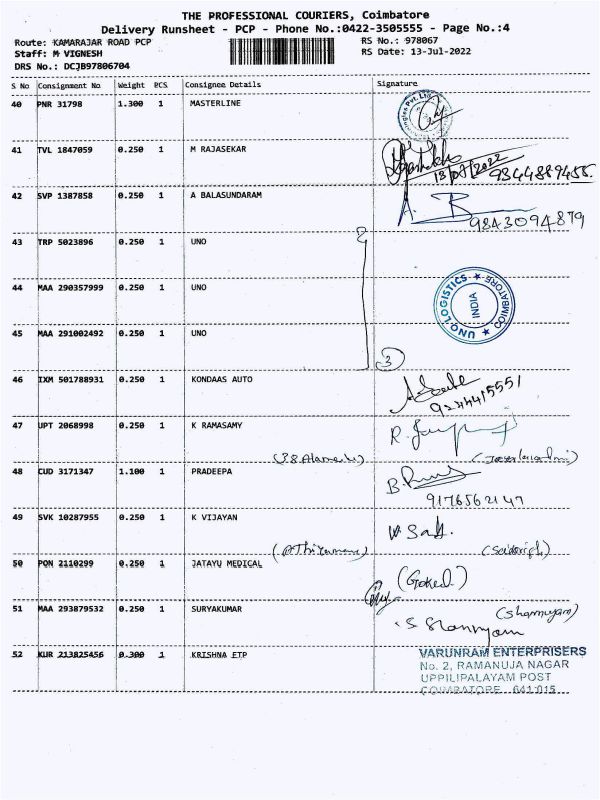 THE PROFESSIONAL COURIERS, Coimbatore
Delivery Runsheet - PCP - Phone No.:0422-3505555 - Page No.:4
Route: KAMARAJAR ROAD PCP
RS No.: 978067
Staff: M VIGNESH
RS Date: 13-Jul-2022
DRS No.: DCJB97806704
S No Consignment No Weight PCS Consignee Details Signature
40 PNR 31798 1.300 1 MASTERLINE
41 TVL 1847059 0.250 1 M RAJASEKAR
9344889455
42 SVP 1387858 0.250 1 A BALASUNDARAM
A. B
9843094879
43 TRP 5023896 0.250 1 UNO
44 MAA 290357999 0.250 1 UNO
UNO LOGISTICS ★ COIMBATORE ★
INDIA
45 MAA 291002492 0.250 1 UNO
3
46 IXM 501788931 0.250 1 KONDAAS AUTO
47 UPT 2068998 0.250 1 K RAMASAMY
48 CUD 3171347 1.100 1 PRADEEPA
9176562147
49 SVK 10287955 0.250 1 K VIJAYAN
50 PON 2110299 0.250 1 JATAYU MEDICAL
(Gokul)
51 MAA 293879532 0.250 1 SURYAKUMAR
(Shanmugam)
52 KUR 213825456 0.300 1 KRISHNA ETP
VARUNRAM ENTERPRISERS
No. 2, RAMANUJA NAGAR
UPPILIPALAYAM POST
COIMBATORE 641 015